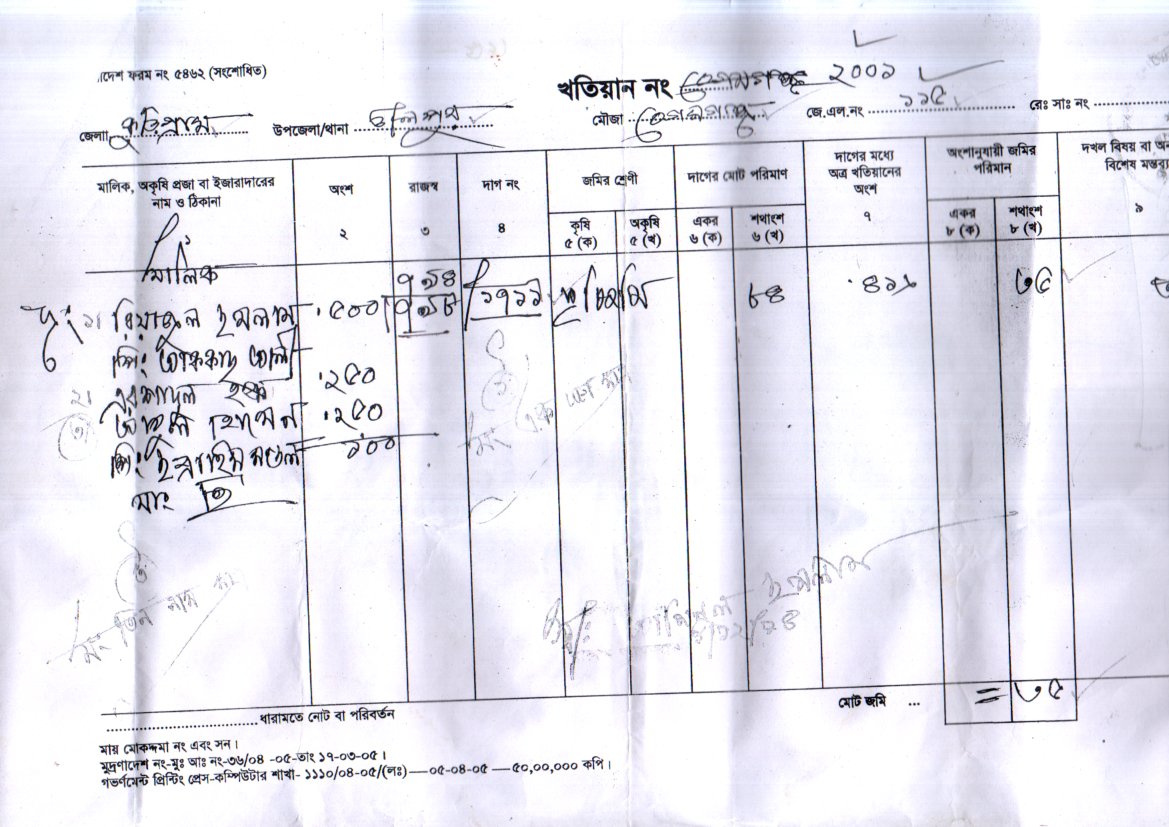 দেশ ফরম নং ৫৪৬২ (সংশোধিত)
খতিয়ান নং ২০০১
জেলা কুড়িগ্রাম উপজেলা/থানা উলিপুর মৌজা জে.এল.নং ১১৫ রেঃ সাঃ নং
মালিক, অকৃষি প্রজা বা ইজারাদারের নাম ও ঠিকানা
অংশ
২
রাজস্ব
৩
দাগ নং
৪
জমির শ্রেণী
কৃষি
৫ (ক)
অকৃষি
৫ (খ)
দাগের মোট পরিমাণ
একর
৬ (ক)
শতাংশ
৬ (খ)
দাগের মধ্যে অত্র খতিয়ানের অংশ
৭
অংশানুযায়ী জমির পরিমান
একর
৮ (ক)
শতাংশ
৮ (খ)
দখল বিষয় বা
বিশেষ মন্তব্য
৯
মালিক
১। রিয়াজুল ইসলাম .৫০০ ১৭১১ ৮৪ ৩৫
পিং আলী
২। এরশাদুল হক .২৫০
হোসেন .২৫০
পিং ইব্রাহিম মন্ডল ১.০০
সাং ঐ
সং এক দাগ মাত্র
সং তিন নাম মাত্র
ইসলাম
মোট জমি ... = ৩৫
ধারামতে নোট বা পরিবর্তন
মায় মোকদ্দমা নং এবং সন।
মুদ্রণাদেশ নং-মুঃ আঃ নং-৩৬/০৪ -০৫-তাং ১৭-০৩-০৫।
গভর্ণমেন্ট প্রিন্টিং প্রেস-কম্পিউটার শাখা- ১১১০/০৪-০৫/(লঃ)—০৫-০৪-০৫ —৫০,০০,০০০ কপি।